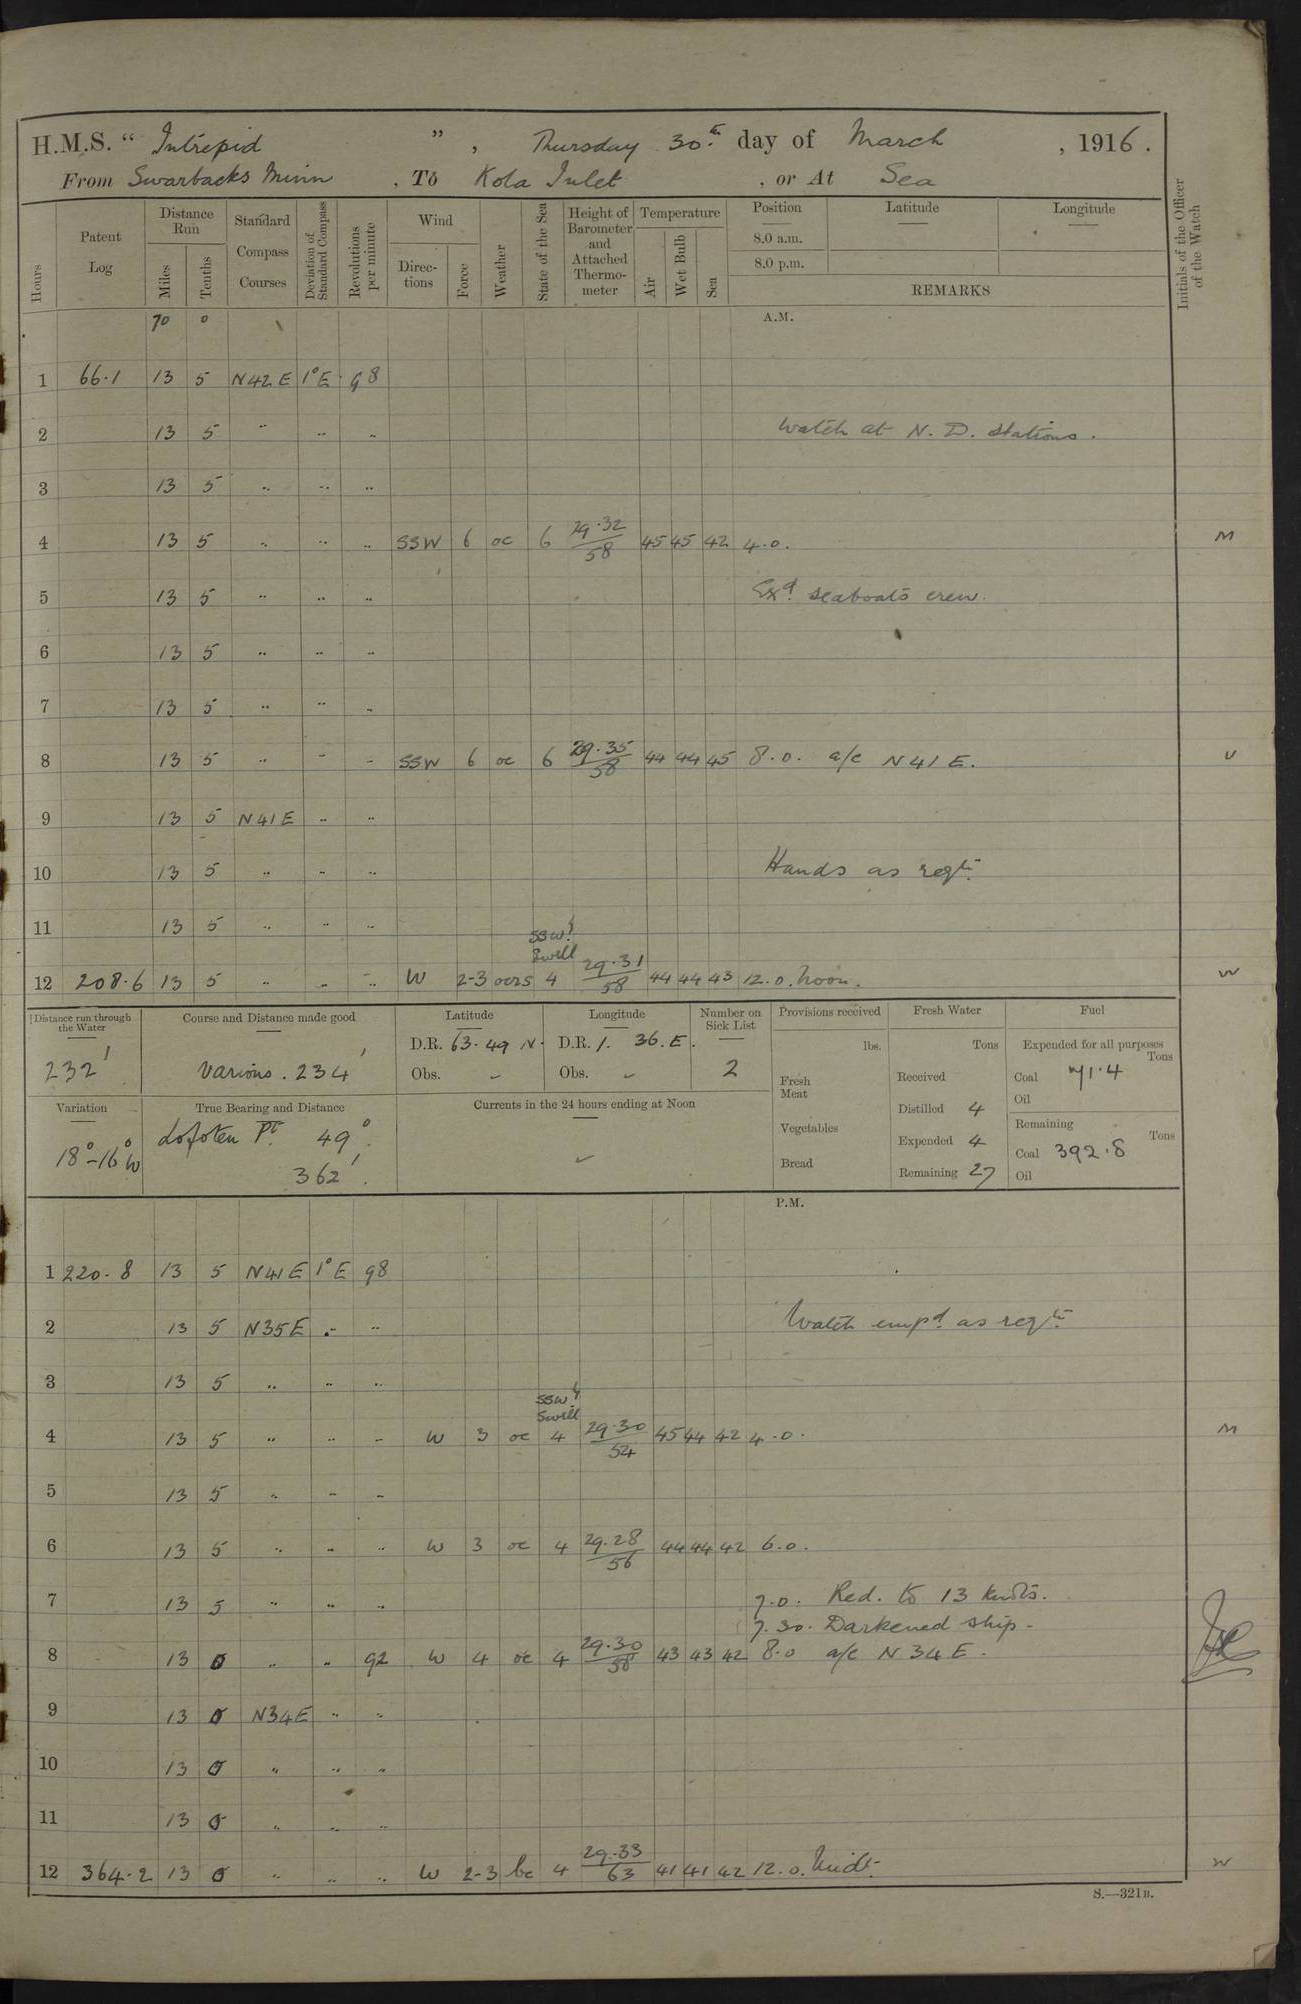 H.M.S. " Intrepid " , Thursday 30th day of March , 1916 .
From Swarbacks Minn , To Kola Inlet , or At Sea
Hours Patent Log Distance Run Miles Tenths Standard Compass Courses Deviation of Standard Compass Revolutions per minute Wind Directions Force Weather State of the Sea Height of Barometer and Attached Thermometer Temperature Air Wet Bulb Sea Position Latitude Longitude Initials of the Officer of the Watch
8.0 a.m.
8.0 p.m.
REMARKS
70 0 A.M.
1 66.1 13 5 N42E 1°E 98
2 13 5 .. .. .. Watch at N. D. Stations.
3 13 5 .. .. ..
4 13 5 .. .. .. SSW 6 oc 6 29.32/58 45 45 42 4.0. M
5 13 5 .. .. .. Exd. seaboats crew.
6 13 5 .. .. ..
7 13 5 .. .. ..
8 13 5 .. .. .. SSW 6 oc 6 29.35/58 44 44 45 8.0. a/c N41E. U
9 13 5 N41E .. ..
10 13 5 .. .. .. Hands as reqte.
11 13 5 .. .. ..
SSW'ly
Swell
12 208.6 13 5 .. .. .. W 2-3 ocrs 4 29.31/58 44 44 43 12.0. Noon. W
Distance run through the Water Course and Distance made good Latitude Longitude Number on Sick List Provisions received Fresh Water Fuel
232' Various. 234' D.R. 63.49 N. D.R. 1. 36. E. lbs. Tons Expended for all purposes Tons
Obs. – Obs. – 2 Fresh Meat Received Coal 71.4
Oil
Variation True Bearing and Distance Currents in the 24 hours ending at Noon Distilled 4 Remaining
18°-16°W Lofoten Pt. 49°. Vegetables Expended 4 Coal 392.8 Tons
362'. Bread Remaining 27 Oil
P.M.
1 220.8 13 5 N41E 1°E 98
2 13 5 N35E .. .. Watch empd. as reqte.
3 13 5 .. .. ..
SSW'ly
Swell
4 13 5 .. .. .. W 3 oc 4 29.30/54 45 44 42 4.0. M
5 13 5 .. .. ..
6 13 5 .. .. .. W 3 oc 4 29.28/56 44 44 42 6.0.
7 13 5 .. .. .. 7.0. Red. to 13 knots.
7.30. Darkened ship.
8 13 0 .. .. 92 W 4 oc 4 29.30/58 43 43 42 8.0 a/c N34E.
9 13 0 N34E .. ..
10 13 0 .. .. ..
11 13 0 .. .. ..
12 364.2 13 0 .. .. .. W 2-3 bc 4 29.33/63 41 41 42 12.0. Midt. W
S.—321B.